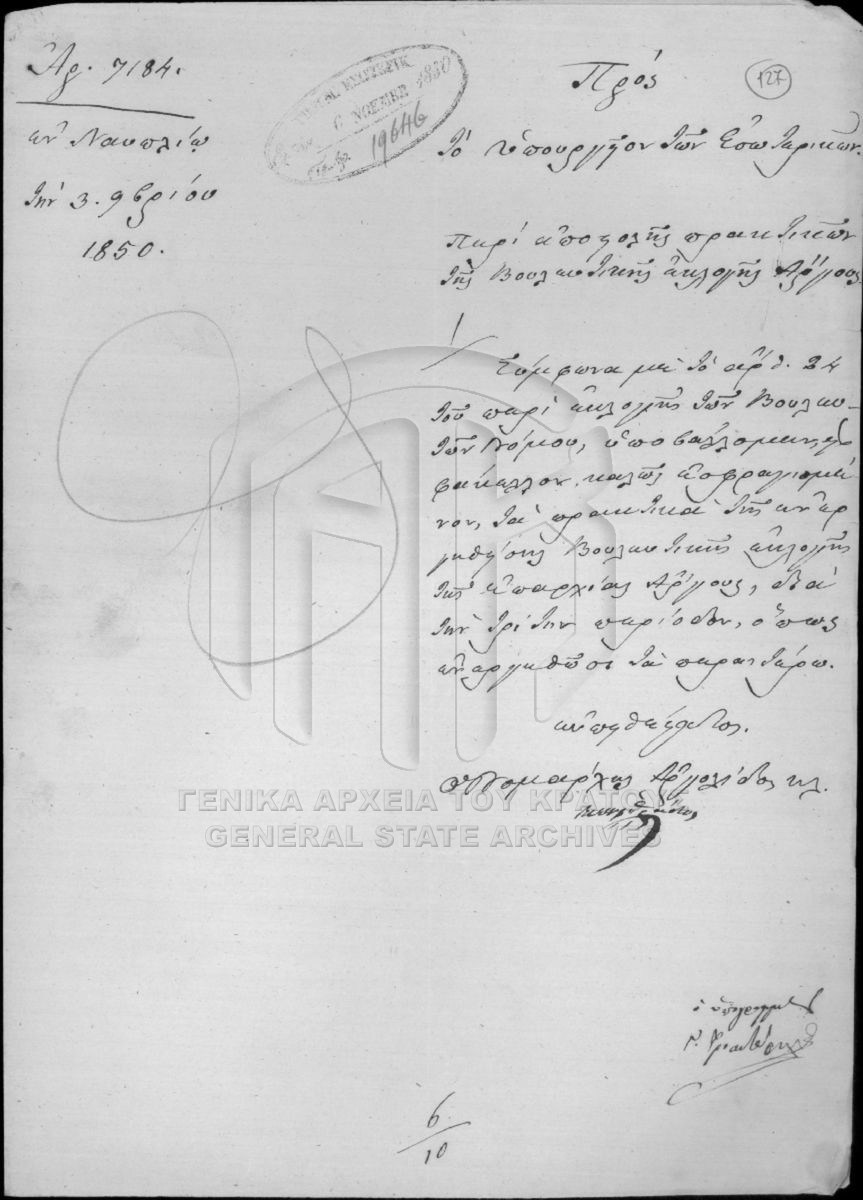 Ἀρ. 7184.
ἐν Ναυπλίῳ
τὴν 3. 9βρίου
1850.
6 ΝΟΕΜΒΡ 1850
19646
127
Πρὸς
Τὸ Ὑπουργεῖον τῶν Ἐσωτερικῶν.
Περὶ ἀποστολῆς πρακτικῶν
τῆς Βουλευτικῆς ἐκλογῆς Ἄργους.
Σύμφωνα μὲ τὸ ἄρθ. 24
τοῦ περὶ ἐκλογῆς τῶν Βουλευ-
τῶν Νόμου, ὑποβάλλομεν, εἰς
φάκελλον καλῶς ἐσφραγισμέ
νον, τὰ πρακτικὰ τῆς ἐνερ
γηθείσης Βουλευτικῆς ἐκλογῆς
τῆς ἐπαρχίας Ἄργους, διὰ
τὴν τρίτην περίοδον, ὅπως
ἐνεργηθῶσι τὰ περαιτέρω.
εὐπειθέστατος.
ὁ Νομάρχης Ἀργολίδος κλ.
ὁ ὑπογραμμ
6
10
ΓΕΝΙΚΑ ΑΡΧΕΙΑ ΤΟΥ ΚΡΑΤΟΥΣ
GENERAL STATE ARCHIVES